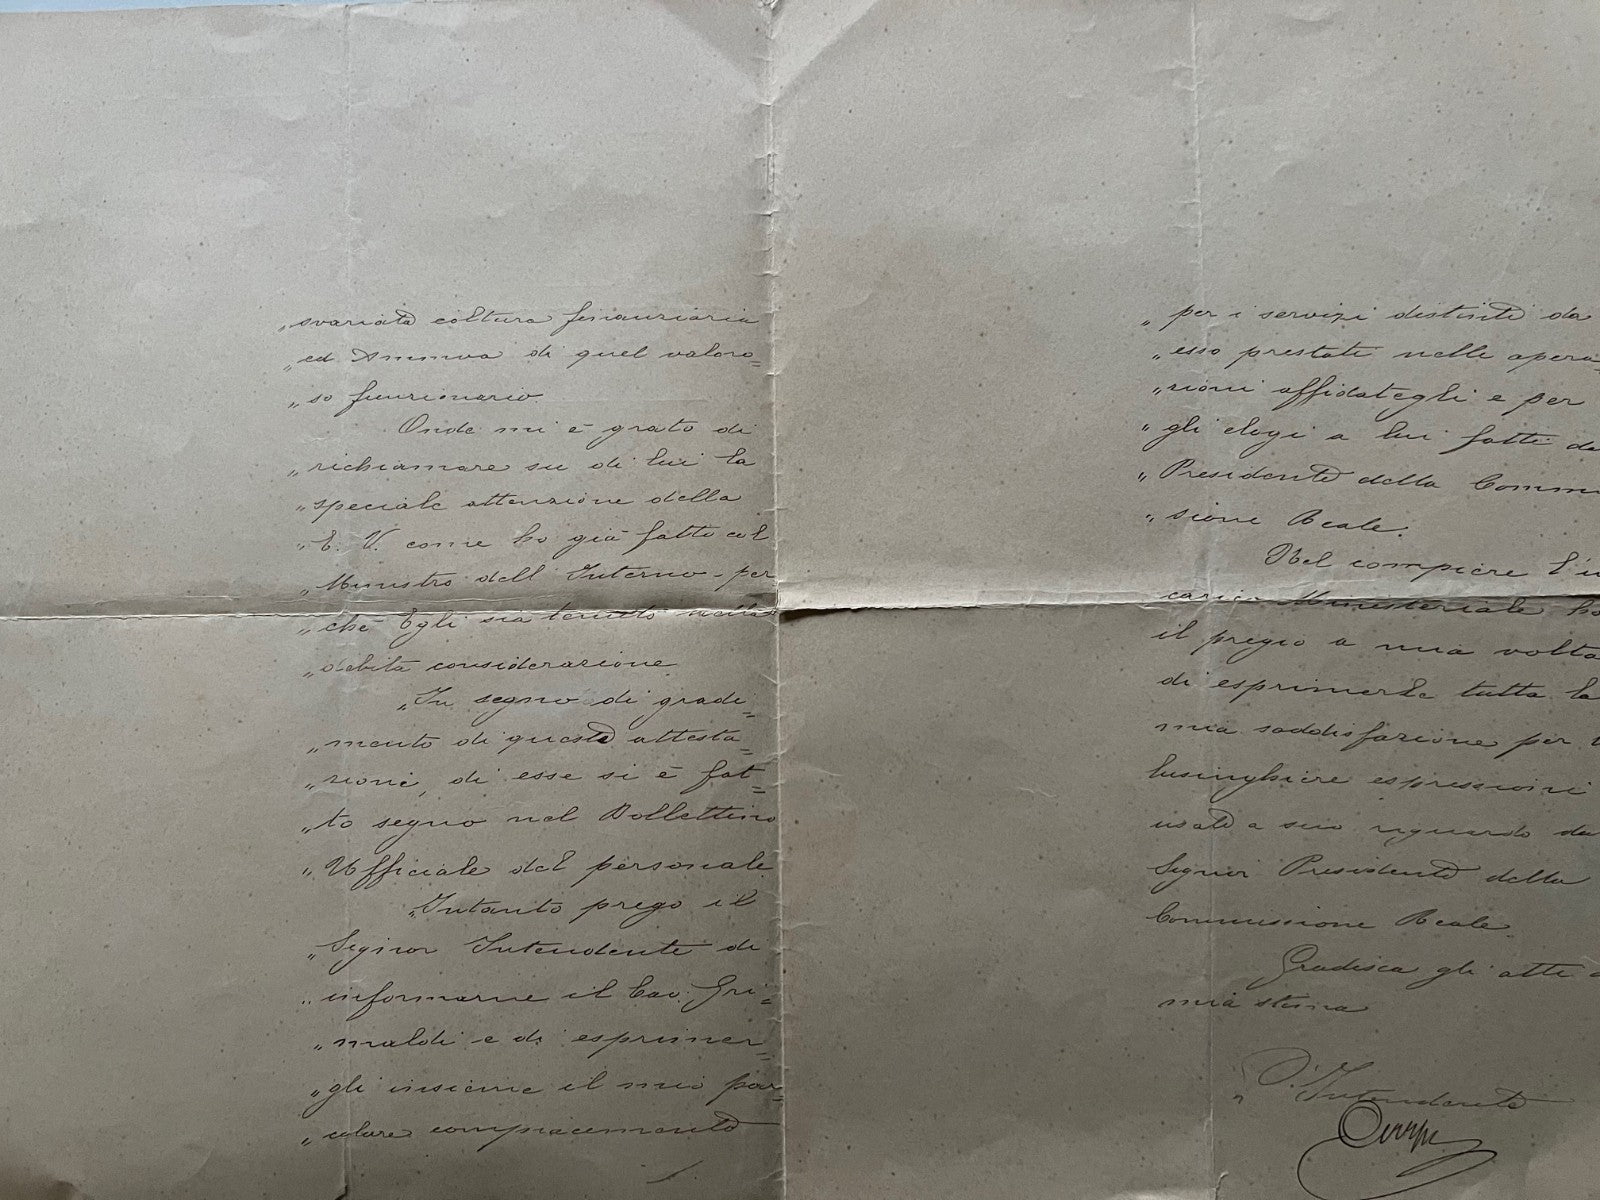 „svariata coltura finanziaria
„ed Ammva di quel valoro=
„so funzionario.
Onde mi è grato di
„richiamare su di lui la
„speciale attenzione della
„E. V. come ho già fatto col
„Ministro dell'Interno - per
„chè Egli sia tenuto nella
„debita considerazione
„In segno di gradi=
„mento di queste attesta=
„zioni, di esse si è fat=
„to segno nel Bollettino
„Ufficiale del personale
„Intanto prego il
„Signor Intendente di
„informarne il Cav: Gri=
„maldi e di esprimer=
„gli insieme il mio par=
„colare compiacimento
„per i servizi distinti da
„esso prestati nelle opera=
„zioni affidategli e per
„gli elogi a lui fatti da
„Presidente della Commi
„sione Reale.
Nel compiere l'in
carico Ministeriale ho
il pregio a mia volta
di esprimerle tutta la
mia soddisfazione per
lusinghiere espressioni
usate a suo riguardo da
Signor Presidente della
Commissione Reale.
Gradisca gli atti
mia stima
L'Intendente